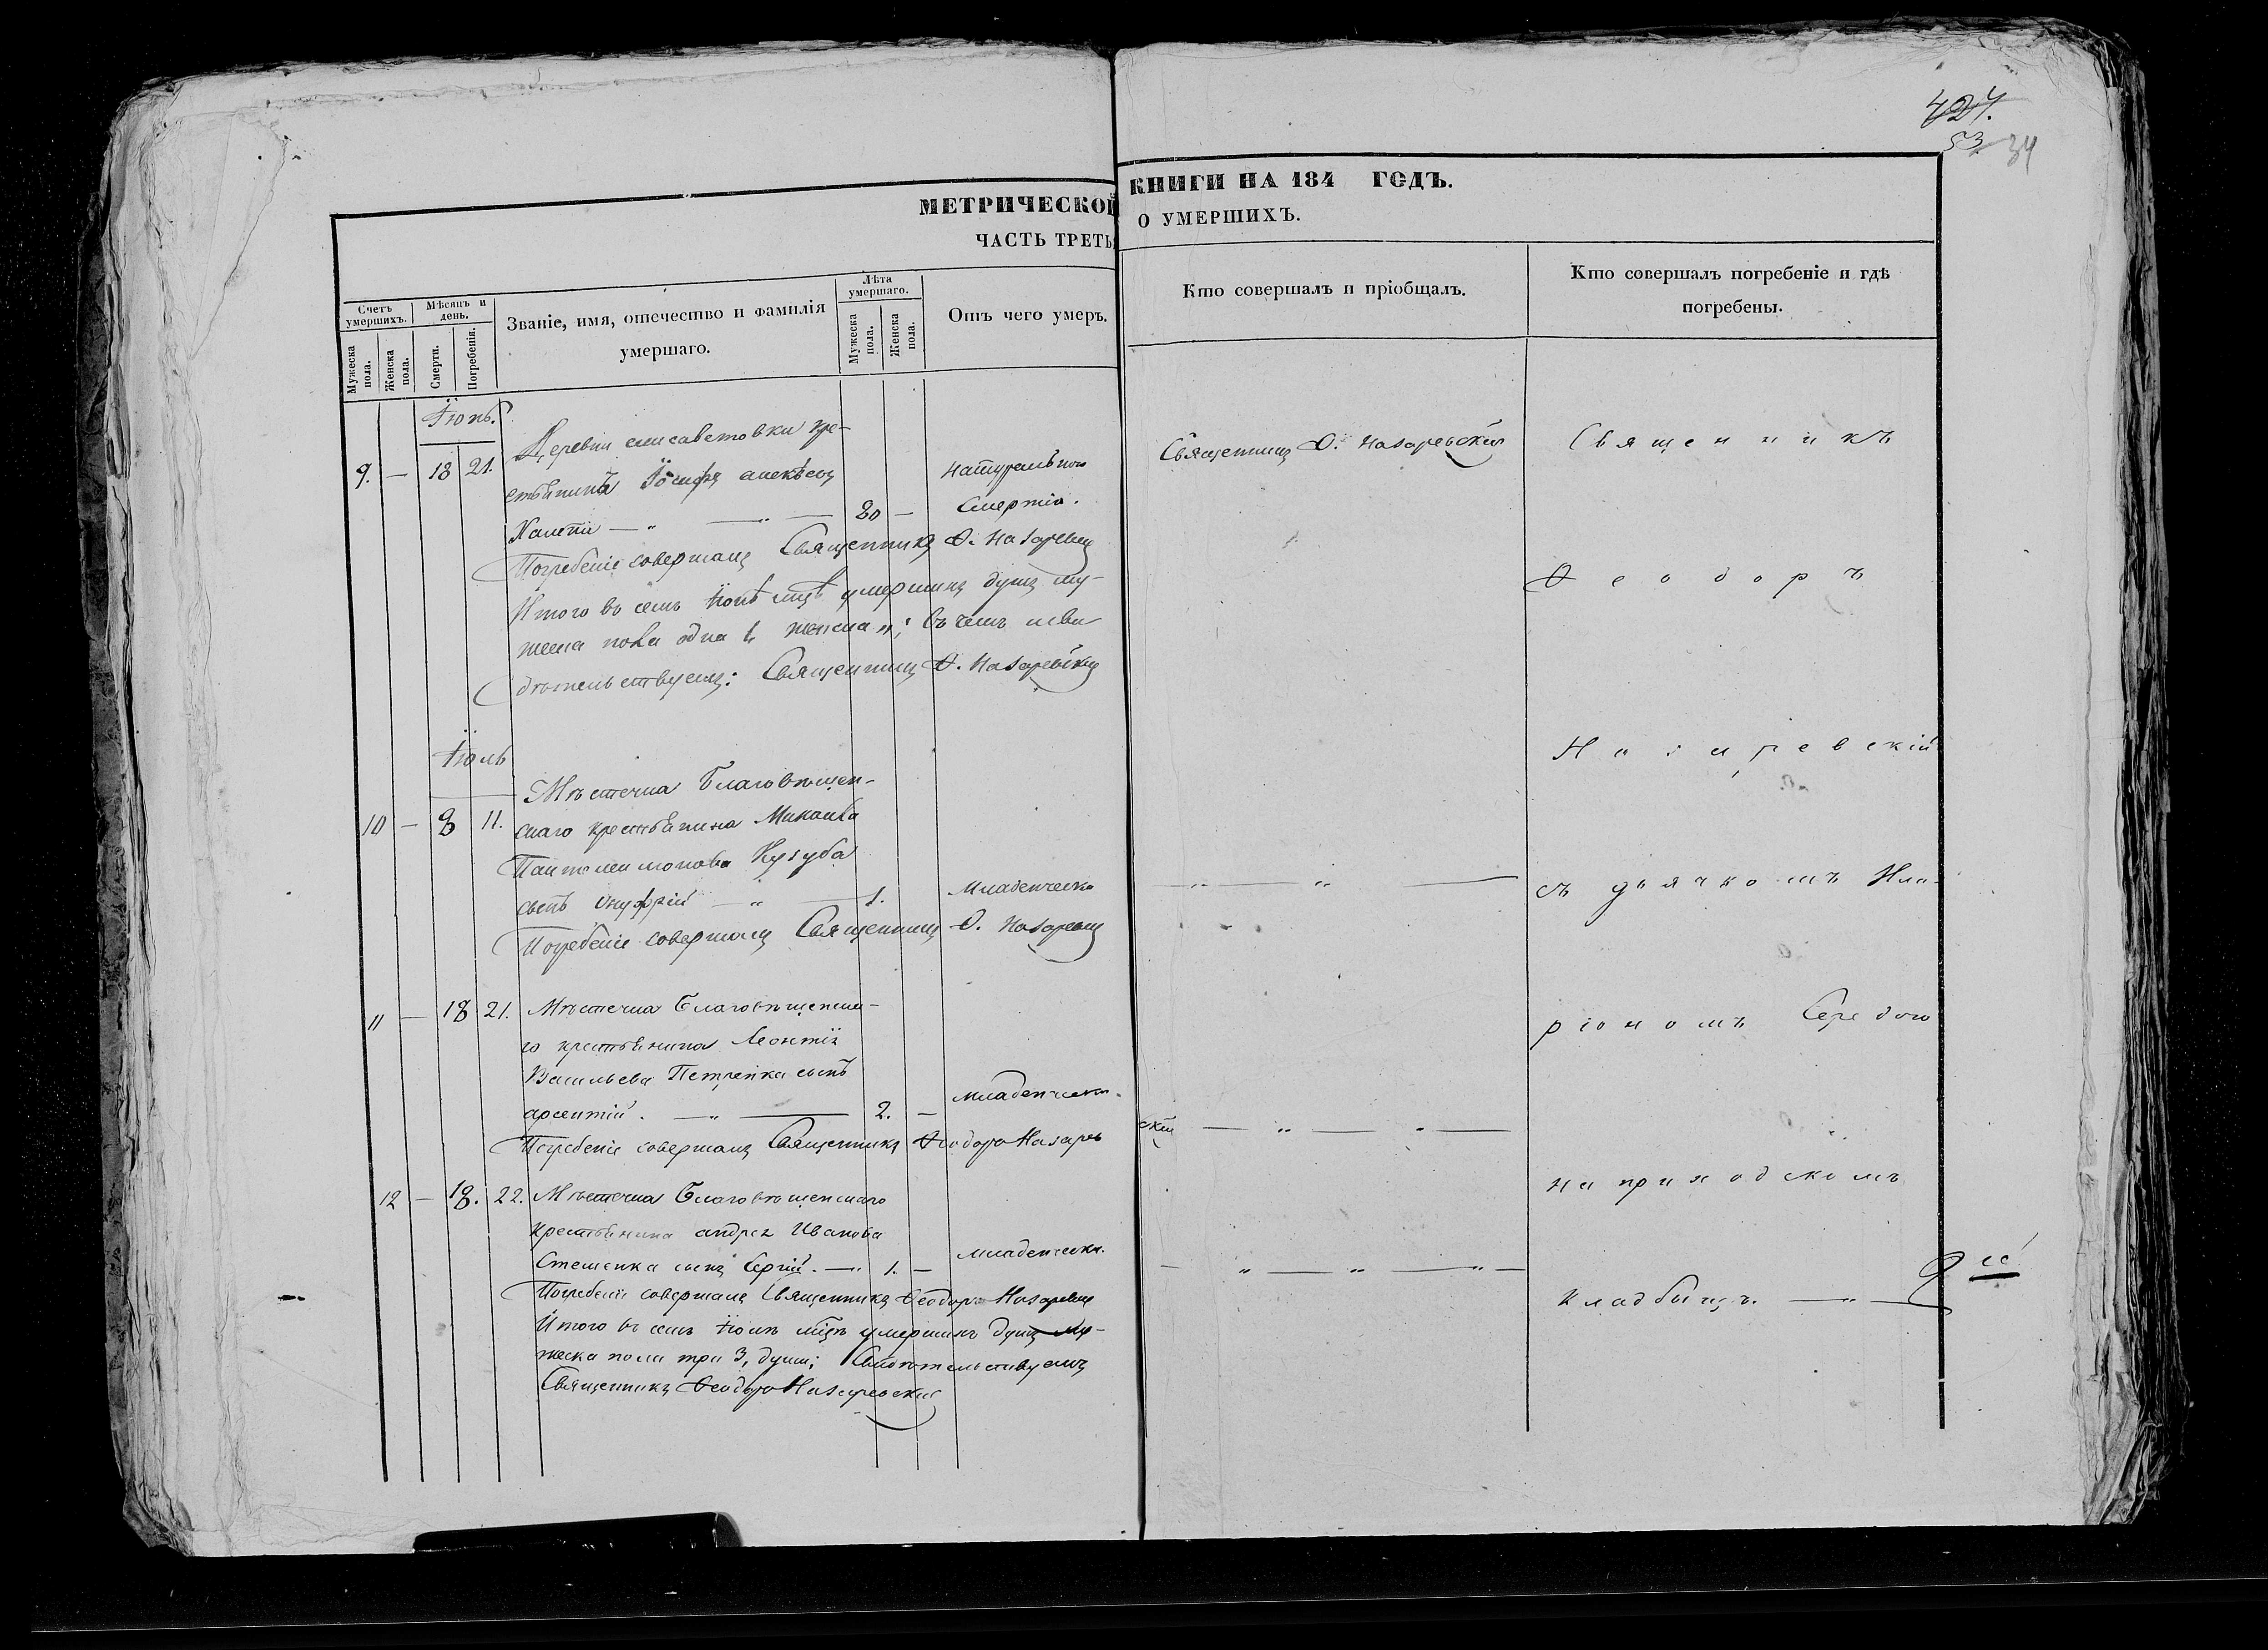 424.
53 34
МЕТРИЧЕСКОЙ КНИГИ НА 184 ГОДЪ.
ЧАСТЬ ТРЕТЬ О УМЕРШИХЪ.
Счетъ умершихъ.
Мужеска пола.
Женска пола.
Мѣсяцъ и день.
Смерти.
Погребенія.
Званіе, имя, отечество и фамилія умершаго.
Лѣта умершаго.
Мужеска пола.
Женска пола.
Отъ чего умеръ.
Кто совершалъ и пріобщалъ.
Кто совершалъ погребеніе и гдѣ погребены.
Іюнь.
9. — 18 21. Деревни елисаветовки кре-
стьянинъ Іосифъ алексѣевъ
— " — " — 80 —
натуральною
Смертію.
Погребеніе совершалъ Священникъ Ѳ. Назаревскій
Итого въ семъ Іюнѣ мцѣ умершихъ душъ му-
жеска пола одна 1, женска "; въ чемъ и сви-
дѣтельствуемъ: Священникъ Ѳ. Назаревскій
Іюль
Мѣстечка Благовѣщен-
10 — 8 11. скаго крестьянина Михаила
Пантелеимонова Кузуба
сынъ Онуфрій — " — 1.
Младенческ
Погребеніе совершалъ Священникъ Ѳ. Назаревскій
11 — 18 21. Мѣстечка Благовѣщенска-
го крестьянина Леонтія
Васильева Петренка сынъ
арсентій. — " — 2. —
младенческ.
Погребеніе совершалъ Священникъ Ѳеодоръ Назарев
12 — 18. 22. Мѣстечка Благовѣщенскаго
крестьянина андрея Иванова
Стешенка сынъ Сергій. — " 1. —
младенческ.
Погребеніе совершалъ Священникъ Ѳеодоръ Назаревскій
Итого въ семъ Іюлѣ мцѣ умершихъ душъ му-
жеска пола три 3, души; Свидѣтельствуемъ
Священникъ Ѳеодоръ Назаревскій
Священникъ Ѳ. Назаревскій
— " — " —
скій — " — " —
— " — " — " —
Священникъ
Ѳеодоръ
Назаревскій
съ дьячкомъ Ила-
ріономъ Середою
на приходскомъ
кладбищѣ. — " —